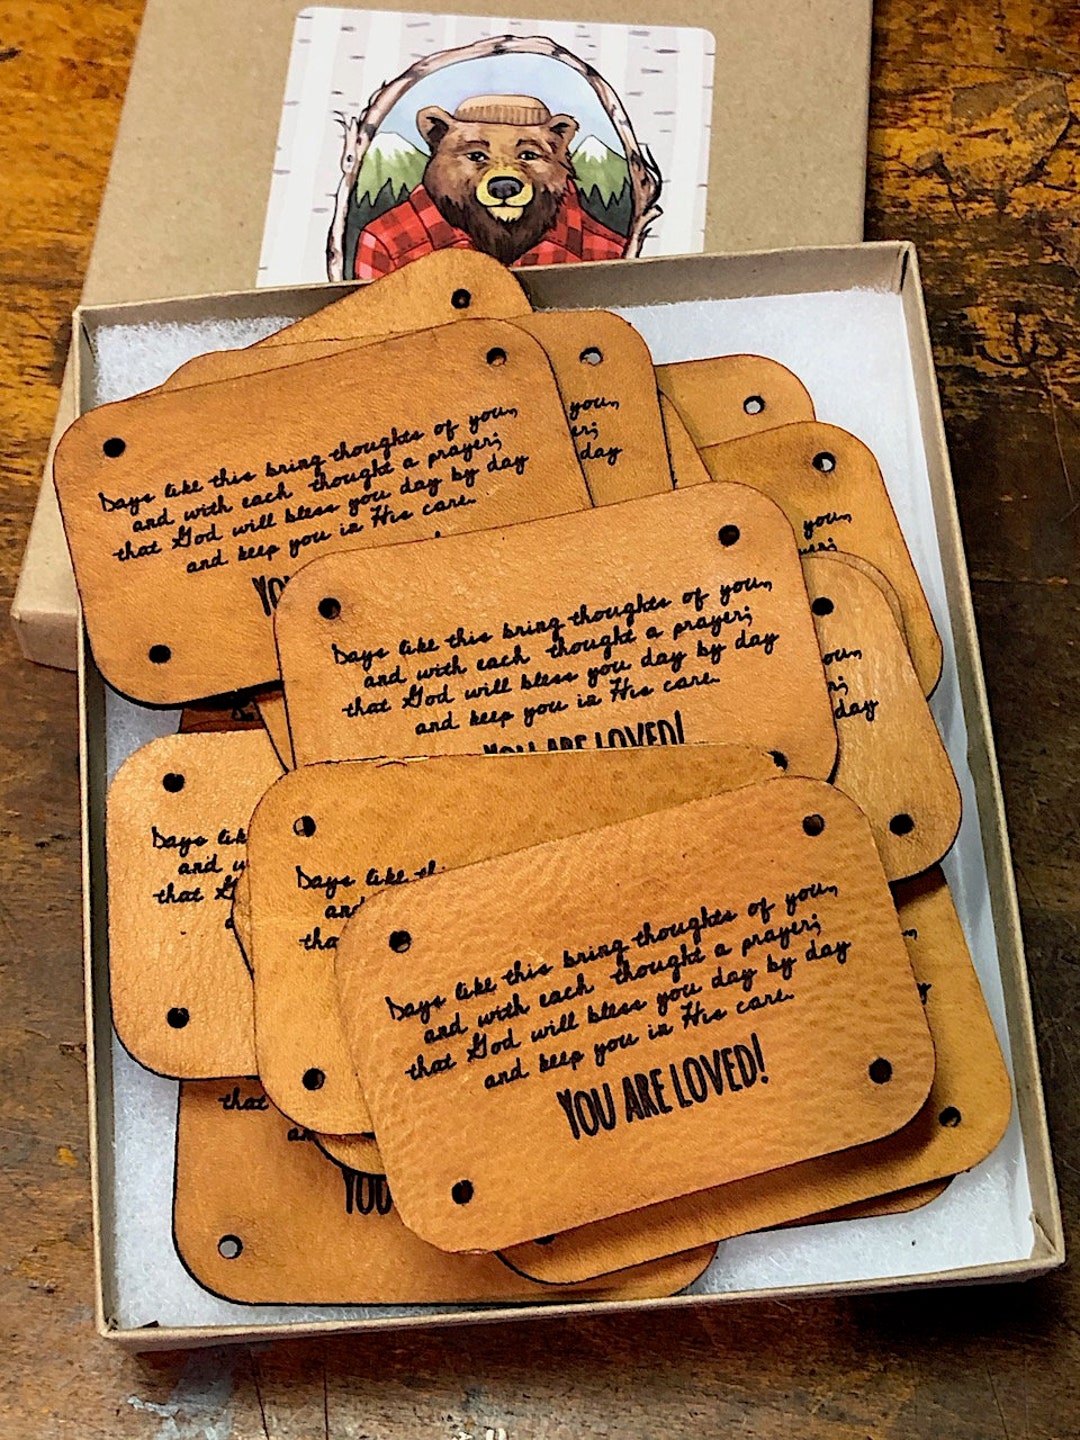 you,
er;
day
Days like this bring thoughts of you,
and with each thought a prayer;
that God will bless you day by day
and keep you in His care.
YO
you,
Days like this bring thoughts of you,
and with each thought a prayer;
that God will bless you day by day
and keep you in His care.
YOU ARE LOVED!
day
Days lik
and w
that G
Days like th
and
tha
Days like this bring thoughts of you,
and with each thought a prayer;
that God will bless you day by day
and keep you in His care.
YOU ARE LOVED!
that
an
YOU